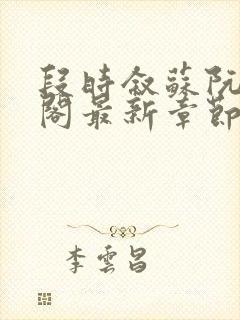 段時敘蘇阮
閣最新章節
李雲昌